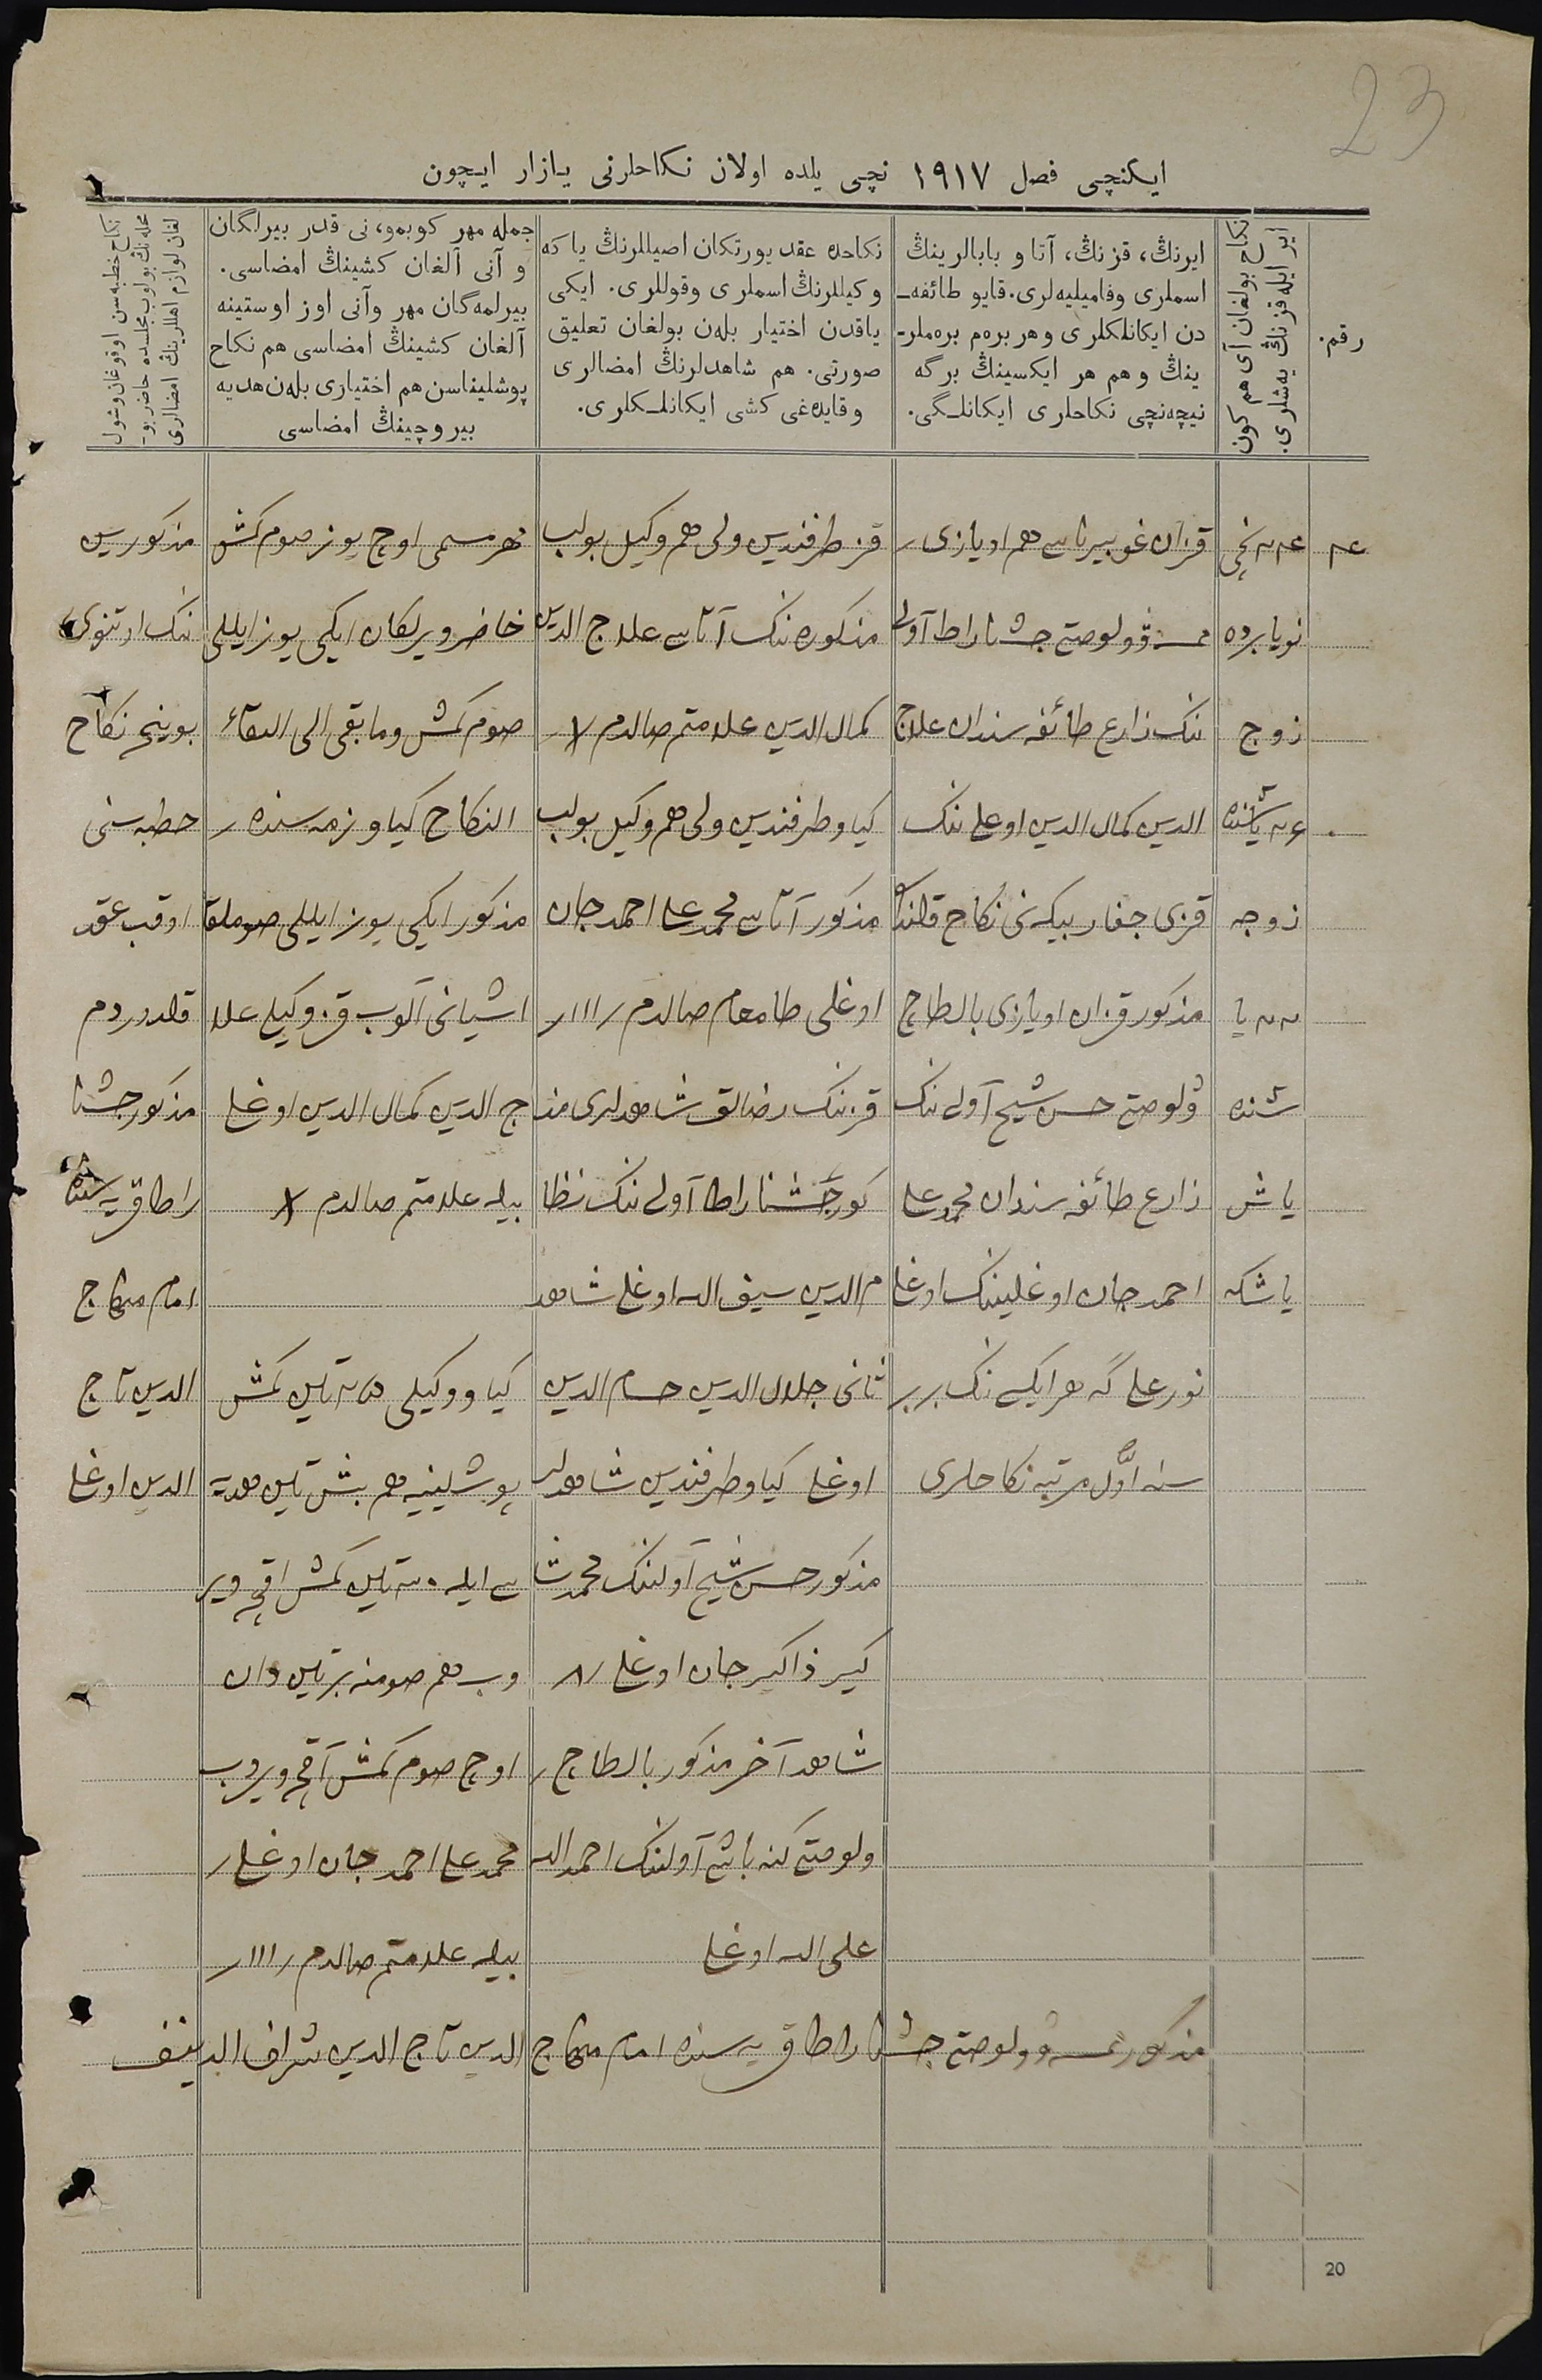 23
ایکنچی فصل ١٩١٧ نچی یلده اولان نکاحلرنی یازار ایچون
رقم.
نکاح بولغان آی هم کون
ایر ایله قزنڭ یەشلری.
ایرنڭ، قزنڭ، آتا و بابالرینڭ
اسملری وفامیلیه‌لری. قایو طائفه‌ـ
دن ایکانلکلری وهر بره‌م بره‌ملرـ
ینڭ وهم هر ایکسینڭ برگه
نیچه‌نچی نکاحلری ایکانلـگی.
نکاحده عقد یورتکان اصیللرنڭ یا که
وکیللرنڭ اسملری وقوللری. ایکی
یاقدن اختیار بلەن بولغان تعلیق
صورتی. هم شاهدلرنڭ امضالری
وقایده‌غی کشی ایکانلـکلری.
جمله مهر کوبمو، نی قدر بیرلگان
و آنی آلغان کشینڭ امضاسی.
بیرلمه‌گان مهر وآنی اوز اوستینه
آلغان کشینڭ امضاسی هم نکاح
پوشلیناسن هم اختیاری بلەن هدیه
بیروچینڭ امضاسی
نکاح خطبه‌سن اوقوغان وشول
محله‌نڭ بولوب مجلسده حاضر بوـ
لغان لوازم اهللرینڭ امضالری
قزان غوبیرناسی هم اویازی
نویابرده
قولوصتی جشنا راطا آولی
زوج
ننک زارع طائفه سندان علاج
الدین کمال الدین اوغلی ننک
زوجه
قزی جفار بیکه‌نی نکاح قلندی
مذکور قزان اویازی بالطاچ
ولوصتی حسن شیخ آولی ننک
یاش
زارع طائفه سندان محمد علی
یاشکه
احمد جان اوغلیننک اوغلی
نور علی گه هر ایکی ننک بر بر
سنه اوّل مرتبه نکاحلری
قز طرفندین ولی هم وکیل بولب
مذکوره ننک آتاسی علاج الدین
کمال الدین علامتم صالدم
کیاو طرفندین ولی هم وکیل بولب
مذکور آتاسی محمد علی احمد جان
اوغلی طامغام صالدم
قزننک رضالق شاهدلری مذ
کور جشنا راطا آولی ننک نظا
م الدین سیف الله اوغلی شاهد
ثانی جلال الدین حسام الدین
اوغلی کیاو طرفندین شاهدلر
مذکور حسن شیخ آولننک محمد شا
کیر ذاکیر جان اوغلی
شاهد آخر مذکور بالطاچ
ولوصتی کنه باش آولننک احمد الله
علی الله اوغلی
مهر مسمی اوچ یوز صوم کمش
حاضر ویرلکان ایکی یوز ایللی
صوم کمش وما بقی الی البقاء
النکاح کیاو ذمه سنده
مذکور ایکی یوز ایللی صوملق
اشیانی آلوب قز وکیلی علا
ج الدین کمال الدین اوغلی
بیله علامتم صالدم
کیاو وکیلی تین کمش
پوشلینه هم بش تین هدیه
سی ایله تین کمش اقچه ویر
وب هم صومنه بر تین دان
اوچ صوم کمش آقچه ویروب
محمد علی احمد جان اوغلی
بیله علامتم صالدم
مذکورین
ننک اوتنوی
بوینچه نکاح
خطبه سنی
اوقب عقد
قلدوردم
مذکور جشنا
راطا قریه سنده
امام منهاج
الدین تاج
الدین اوغلی
مذکور ولوصتی جشنا راطا قریه سنده امام منهاج الدین تاج الدین شراف الدینف
20